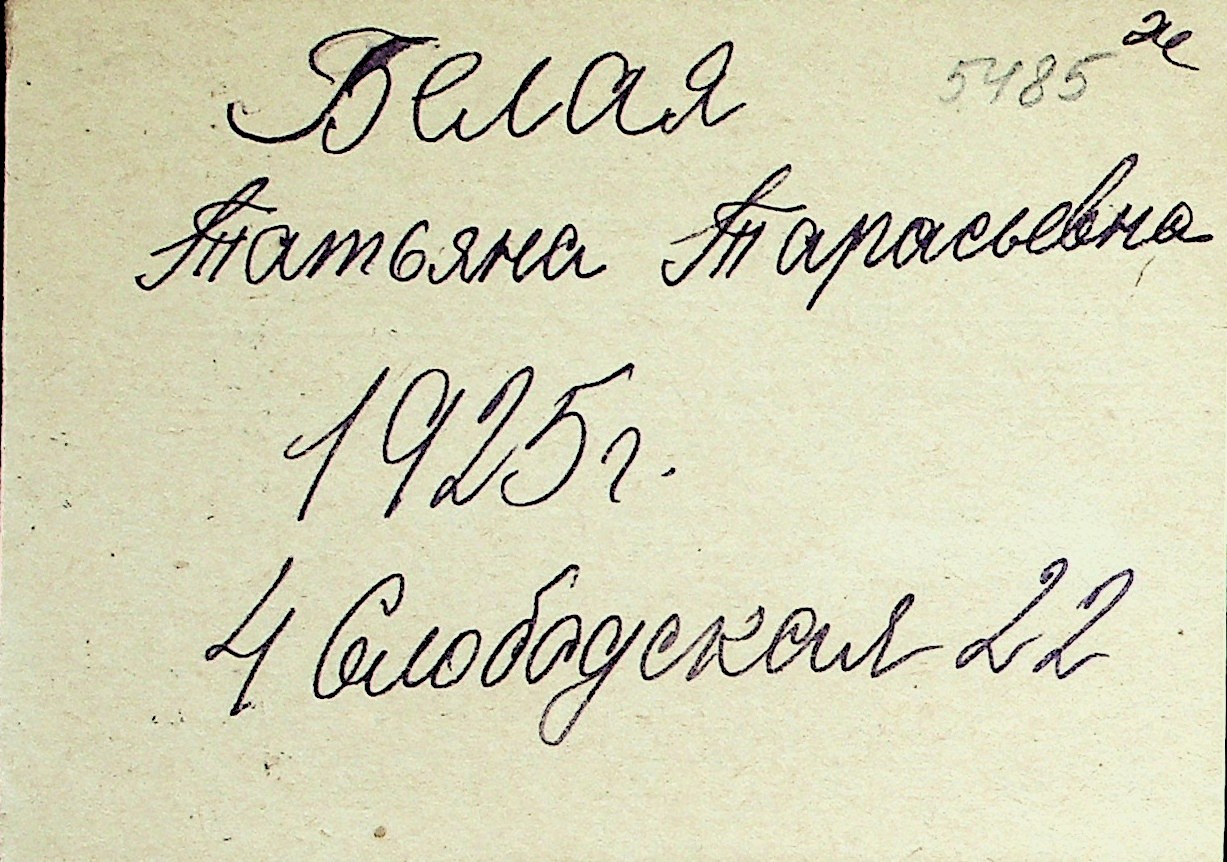 Белая 5485 ж
Татьяна Тарасьевна
1925г.
4 Слободская 22